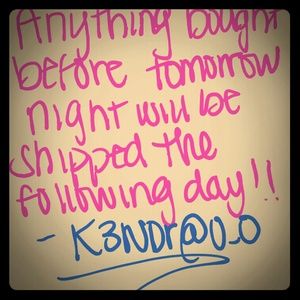 Anything bought
before tomorrow
night will be
shipped the
following day!!
- K3NDr@0_0